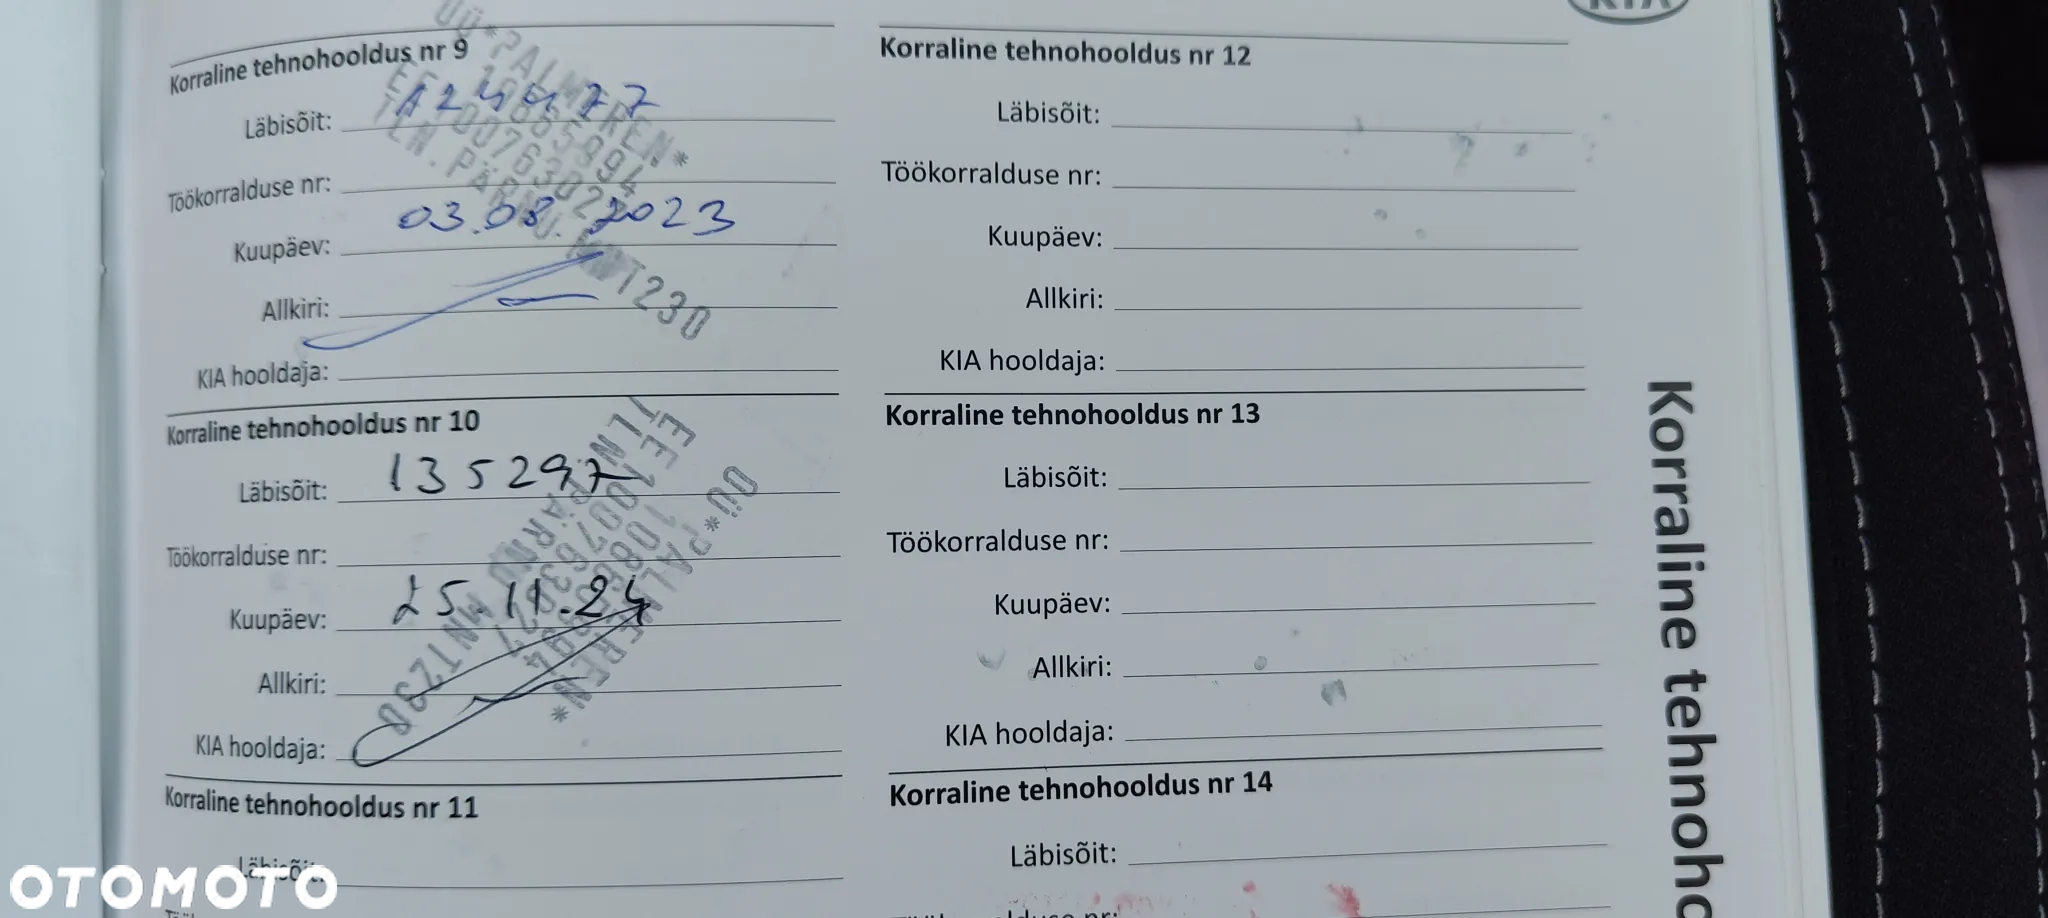 KIA
Korraline tehnohooldus nr 9
Läbisõit: 124477
Töökorralduse nr:
Kuupäev: 03.08.2023
Allkiri:
KIA hooldaja:
OÜ*PALMEREN*
TLN.PÄRNU MNT230
Korraline tehnohooldus nr 10
Läbisõit: 135297
Töökorralduse nr:
Kuupäev: 25.11.24
Allkiri:
KIA hooldaja:
OÜ*PALMEREN*
TLN PÄRNU MNT230
Korraline tehnohooldus nr 11
Läbisõit:
Korraline tehnohooldus nr 12
Läbisõit:
Töökorralduse nr:
Kuupäev:
Allkiri:
KIA hooldaja:
Korraline tehnohooldus nr 13
Läbisõit:
Töökorralduse nr:
Kuupäev:
Allkiri:
KIA hooldaja:
Korraline tehnohooldus nr 14
Läbisõit:
Töökorralduse nr:
Korraline tehnoho
OTOMOTO